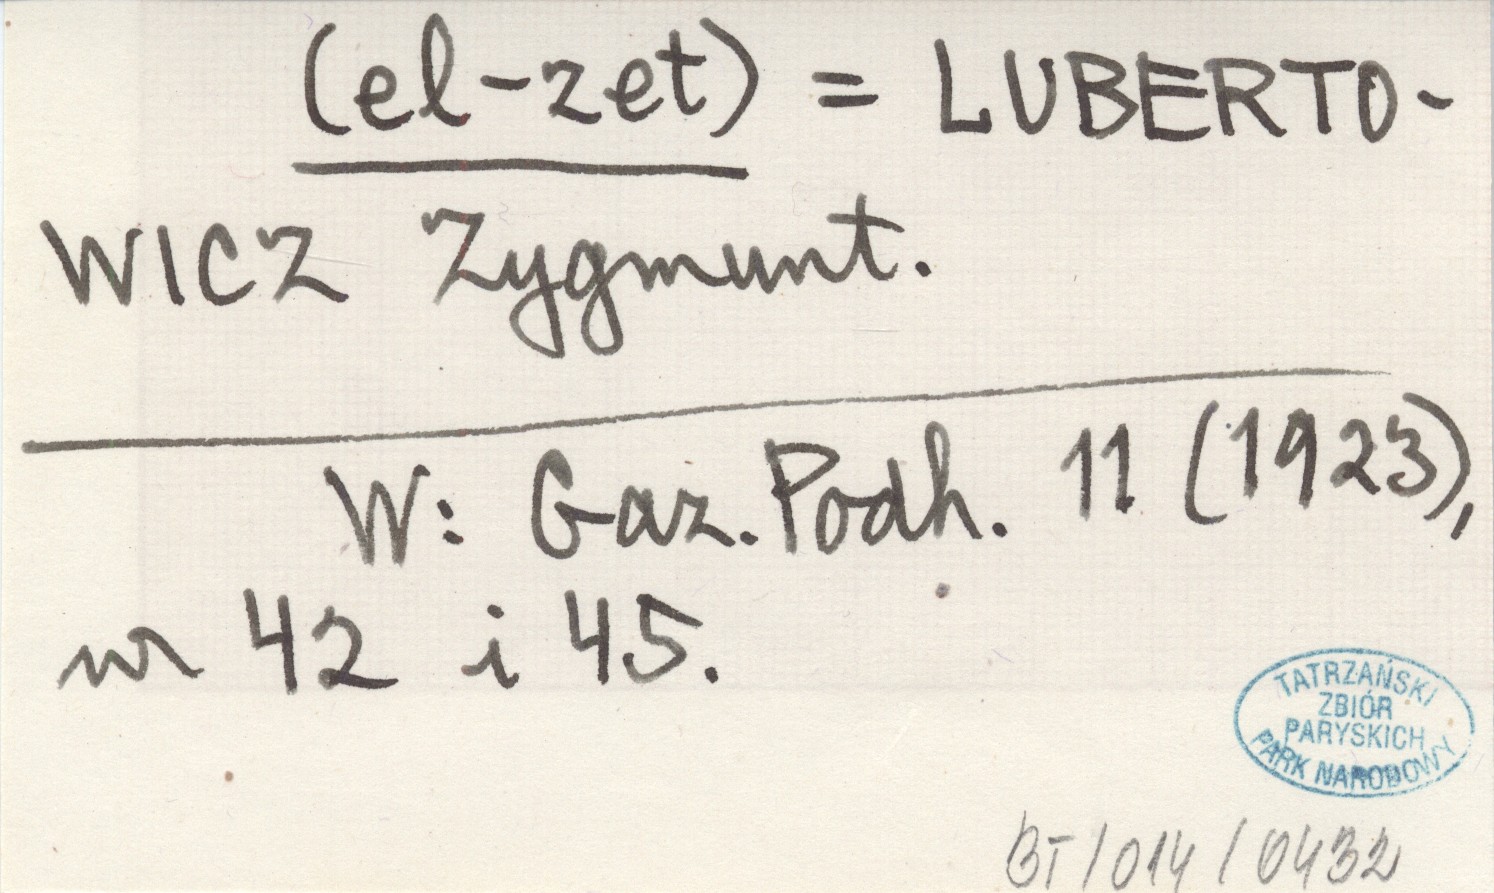 (el-zet) = LUBERTO-
WICZ Zygmunt.
W: Gaz. Podh. 11 (1923),
nr 42 i 45.
TATRZAŃSKI
ZBIÓR
PARYSKICH
PARK NARODOWY
BT/014/0432